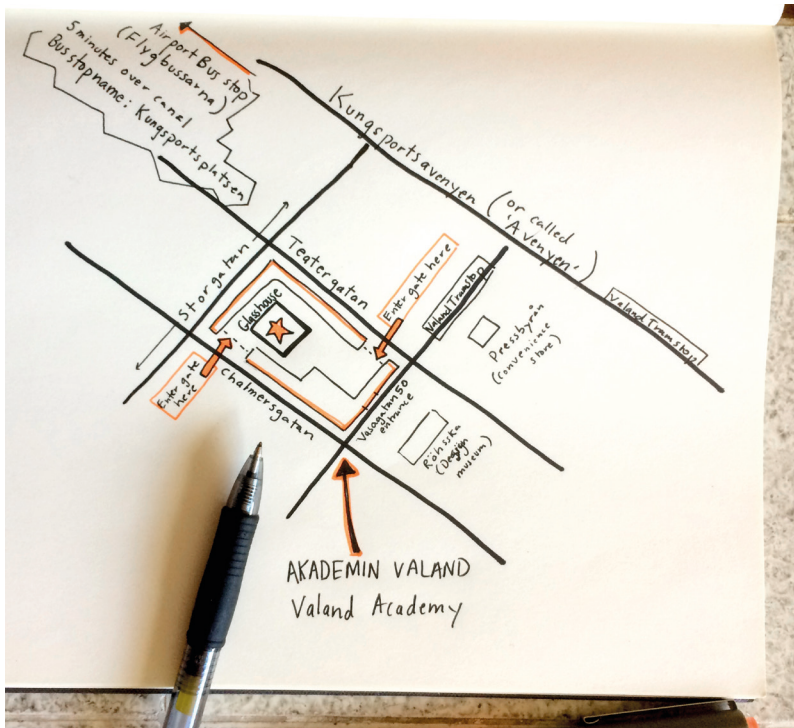 Airport Bus stop
(Flygbussarna)
5 minutes over canal
Bus stop name: Kungsportsplatsen
Kungsportsavenyen
(or called
'Avenyen')
Storgatan
Teatergatan
Enter gate here
Valand Tramstop
Valand Tramstop
Glasshouse
Pressbyrån
(convenience
store)
Enter gate
here
Chalmersgatan
Vasagatan 50
entrance
Röhsska
(Design
museum)
AKADEMIN VALAND
Valand Academy